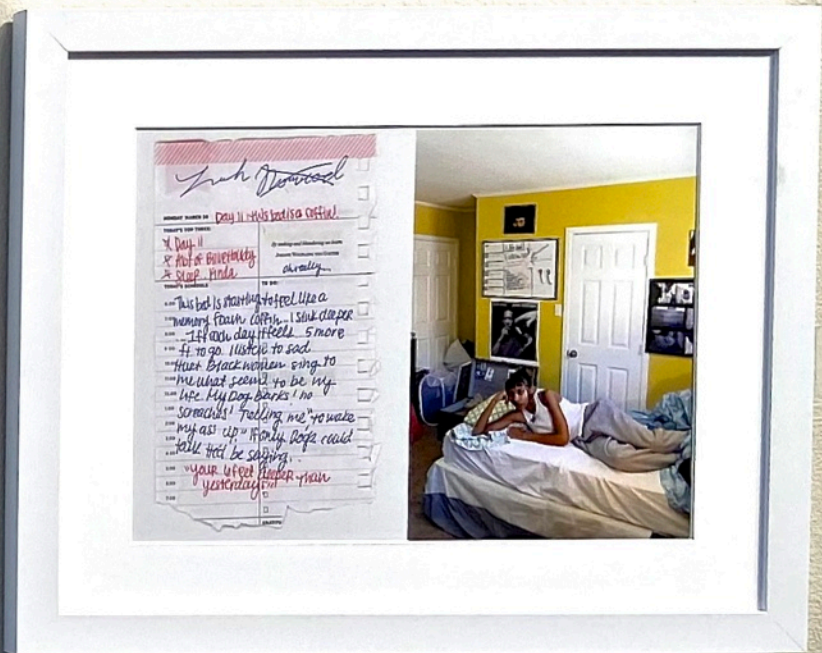 MONDAY MARCH 30 Day 11 - this bed is a coffin!
TODAY'S TOP THREE:
* Day 11
* Hbt of
* Sleep.. Kinda
By seeking and blundering we learn
oh really...
TODAY'S SCHEDULE TO DO:
This bed is starting to feel like a
memory foam coffin.. I sink deeper
1 ft each day it feels.. 5 more
ft to go I listen to sad
Hurt Black women sing to
me what seems to be my
life. My Dog Barks! no
screaches! Telling me "to wake
my ass up" If only Dogs could
talk He'd be saying...
"your 6 feet deeper than
yesterday"